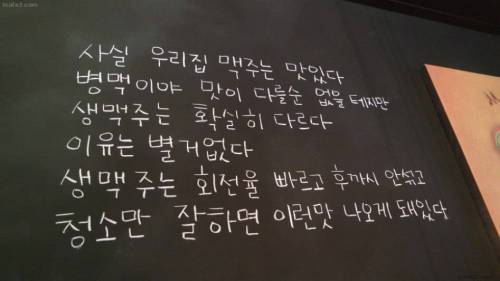 사실 우리집 맥주는 맛있다
병맥이야 맛이 다를순 없을 테지만
생맥주는 확실히 다르다
이유는 별거없다
생맥주는 회전율 빠르고 후까시 안섞고
청소만 잘하면 이런맛 나오게 돼있다